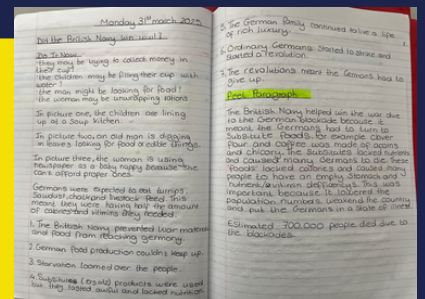 Monday 31st march 2025
Did the British Navy win ww1?
Do It Now:
They may be trying to collect money in
their cup!
the children may be filling their cup with
water!
the man might be looking for food!
the woman may be unwrapping rations
In picture one, the children are lining
up at a Soup kitchen.
In picture two, an old man is digging
in leaves looking for food or edible things.
In picture three, the woman is using
newspaper as a baby nappy because she
can't afford proper ones.
Germans were expected to eat turnips,
Sawdust, chalk and livestock feed. This
meant they were having half the amount
of calories and vitamins they needed.
1. The British Navy prevented war materials
and food from reaching germany.
2. German food production couldn't keep up.
3. Starvation loomed over the people.
4. Substitutes (ersatz) products were used
but they tasted awful and lacked nutrition
5. The German Royal Family continued to live a life
of rich luxury.
6. Ordinary Germans started to strike and
started a revolution.
7. The revolutions meant the Germans had to
give up.
Peel Paragraph
The British Navy helped win the war due
to the German blockade because it
meant the Germans had to turn to
Substitute foods, for example cover
flour and coffee was made of acorns
and chicory. The Substitutes lacked nutrients
and caused many Germans to die. These
foods lacked calories and caused many
people to have an empty stomach and
nutrient deficiencys. This was
important because it lowered the
population numbers, weakend the country
and put the Germans in a state of illness.
Estimated 700,000 people died due to
the blockades.